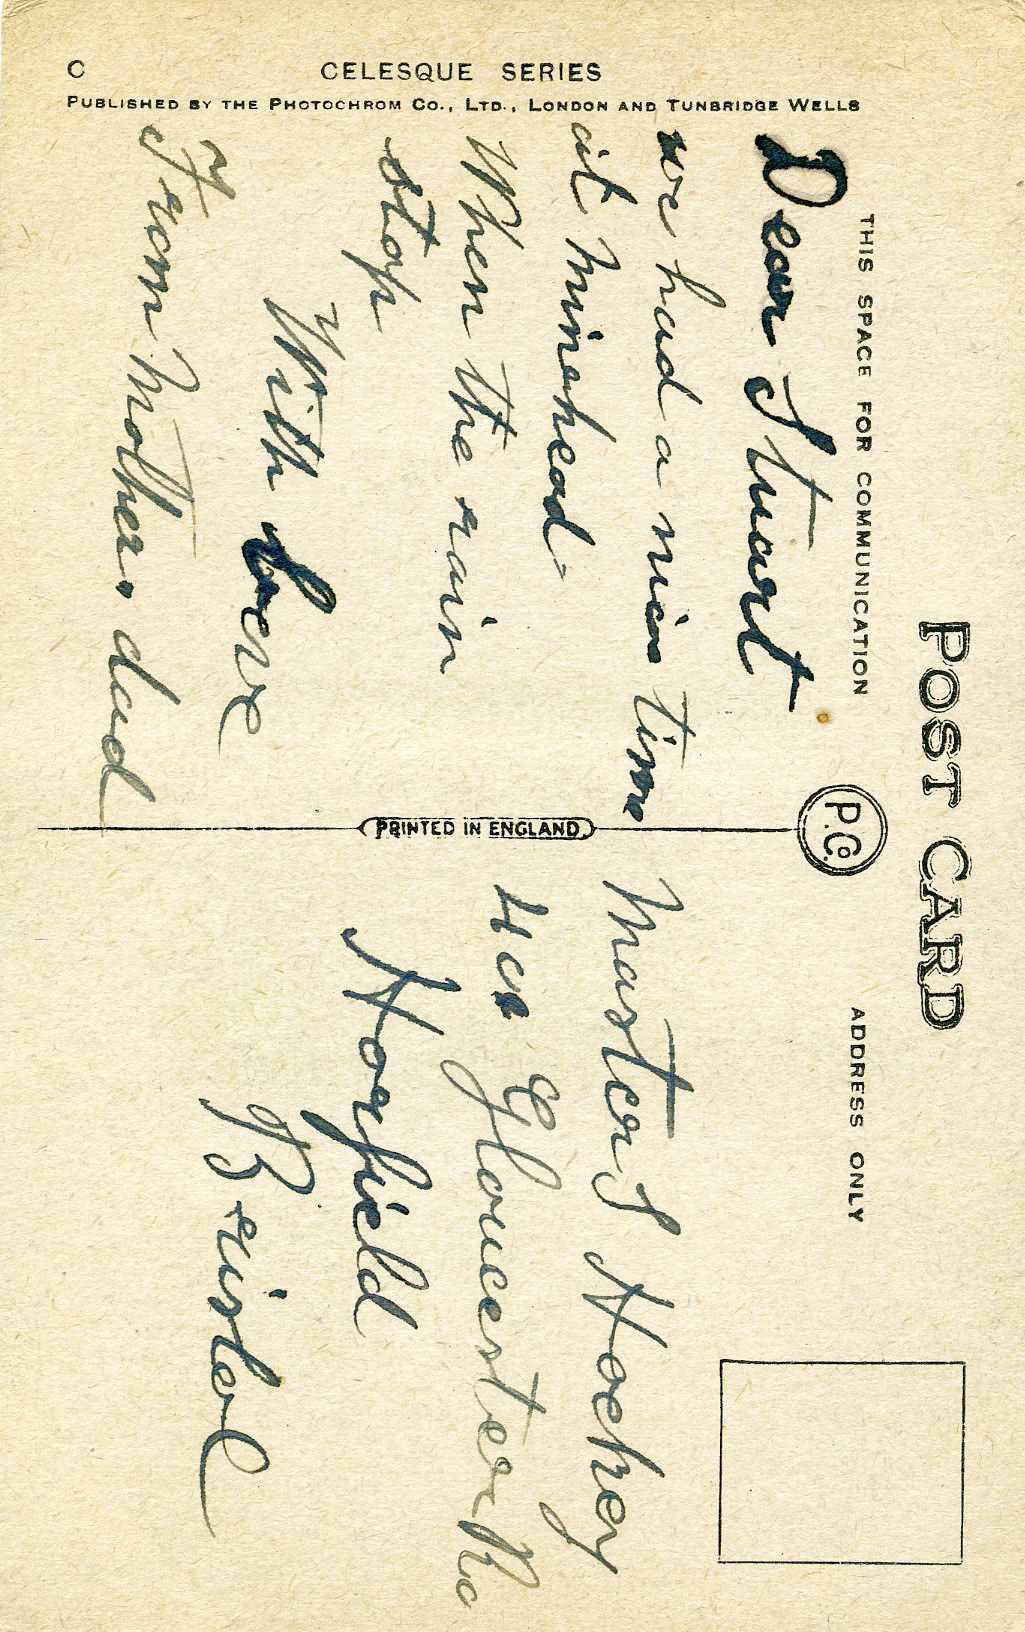 C
CELESQUE SERIES
PUBLISHED BY THE PHOTOCHROM CO., LTD., LONDON AND TUNBRIDGE WELLS
POST CARD
THIS SPACE FOR COMMUNICATION
ADDRESS ONLY
P. Co.
PRINTED IN ENGLAND
Dear Stuart
we had a nice time
at minehead-
When the rain
stop
With Love
From Mother, dad
Master S Hockey
Gloucester Rd
Horfield
Bristol